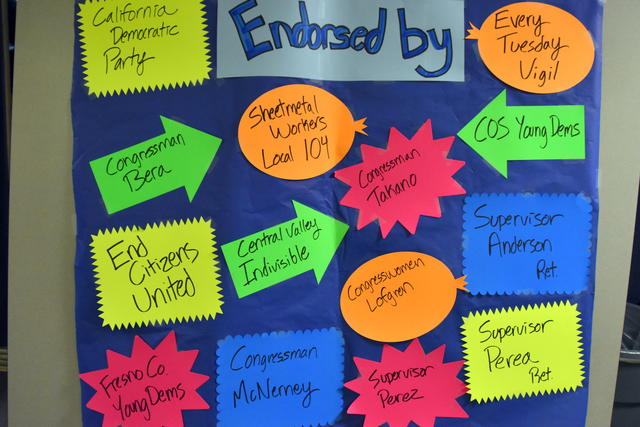 California
Democratic
Party
Endorsed by
Every
Tuesday
Vigil
Sheetmetal
Workers
Local 104
COS Young Dems
Congressman
Bera
Congressman
Takano
End
Citizens
United
Central Valley
Indivisible
Supervisor
Anderson
Ret.
Congresswomen
Lofgren
Fresno Co.
Young Dems
Congressman
McNerney
Supervisor
Perez
Supervisor
Perea
Ret.